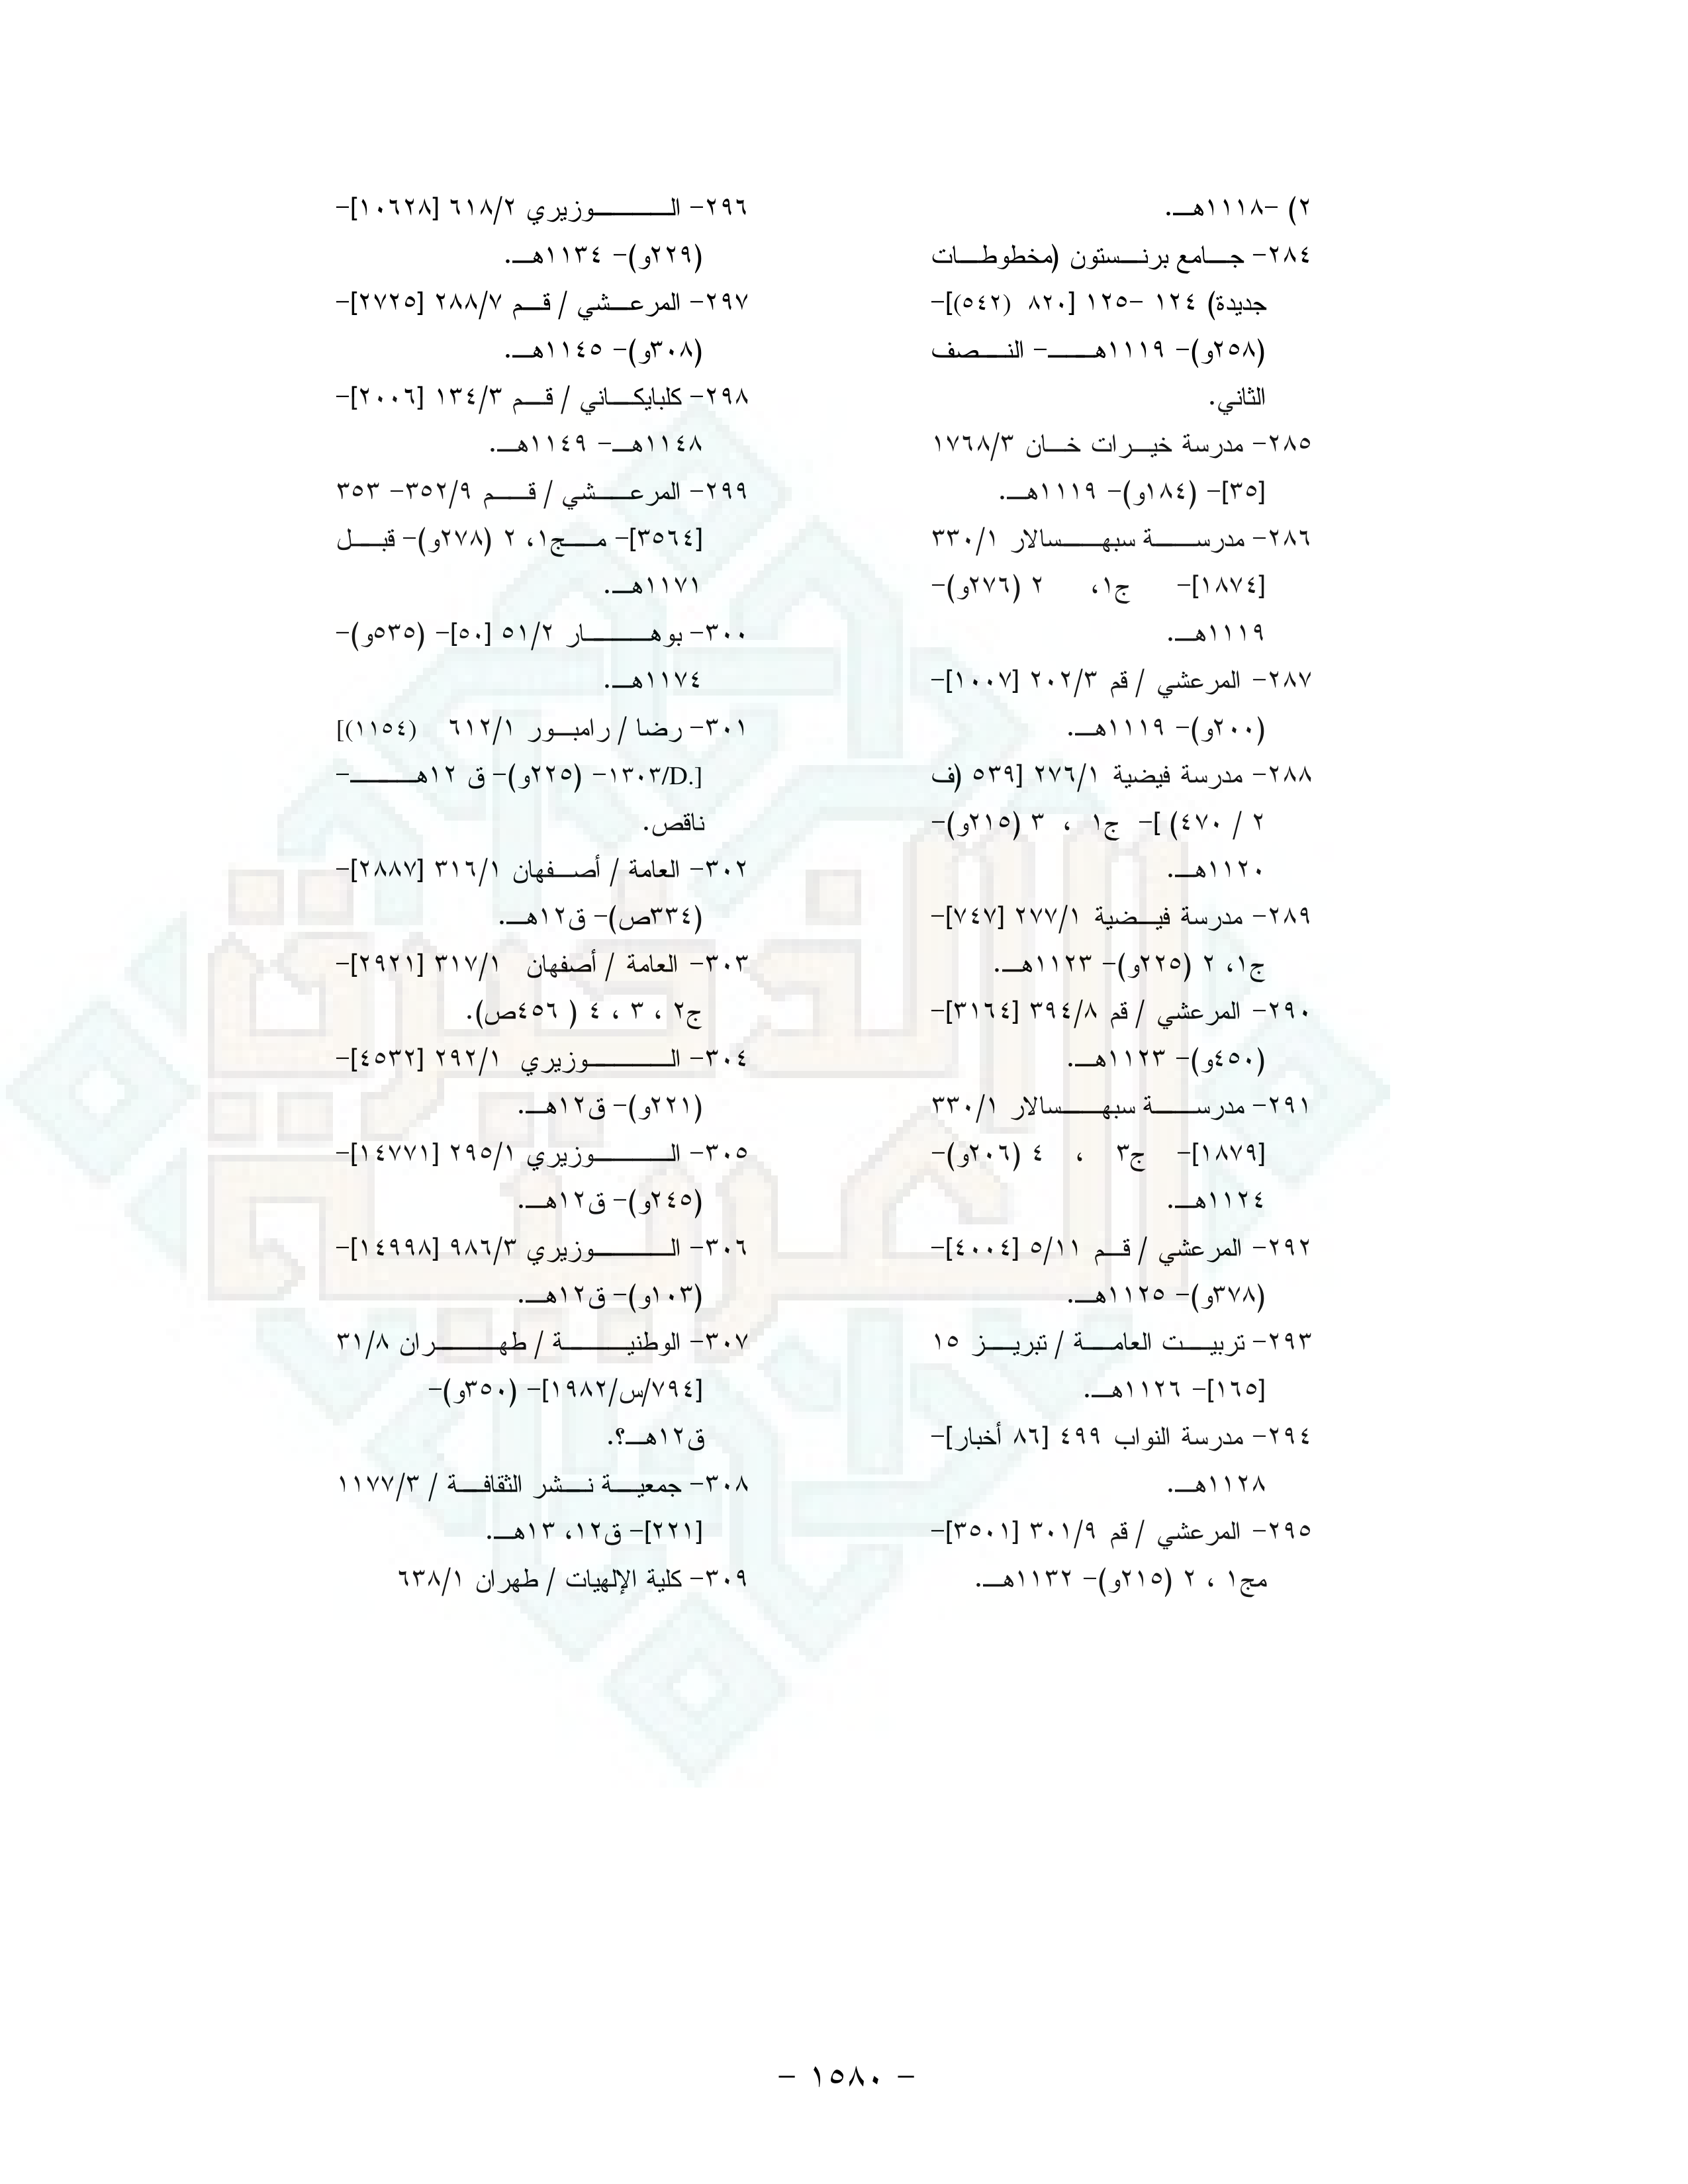 ٢) -١١١٨هـ.
٢٨٤- جامع برنستون (مخطوطات
جديدة) ١٢٤ -١٢٥ [٨٢٠ (٥٤٢)]-
(٢٥٨و)- ١١١٩هـ- النصف
الثاني.
٢٨٥- مدرسة خيرات خان ١٧٦٨/٣
[٣٥]- (١٨٤و)- ١١١٩هـ.
٢٨٦- مدرسة سبهسالار ٣٣٠/١
[١٨٧٤]- ج١، ٢ (٢٧٦و)-
١١١٩هـ.
٢٨٧- المرعشي / قم ٢٠٢/٣ [١٠٠٧]-
(٢٠٠و)- ١١١٩هـ.
٢٨٨- مدرسة فيضية ٢٧٦/١ [٥٣٩ (ف
٢ / ٤٧٠) ]- ج١ ، ٣ (٢١٥و)-
١١٢٠هـ.
٢٨٩- مدرسة فيضية ٢٧٧/١ [٧٤٧]-
ج١، ٢ (٢٢٥و)- ١١٢٣هـ.
٢٩٠- المرعشي / قم ٣٩٤/٨ [٣١٦٤]-
(٤٥٠و)- ١١٢٣هـ.
٢٩١- مدرسة سبهسالار ٣٣٠/١
[١٨٧٩]- ج٣ ، ٤ (٢٠٦و)-
١١٢٤هـ.
٢٩٢- المرعشي / قم ٥/١١ [٤٠٠٤]-
(٣٧٨و)- ١١٢٥هـ.
٢٩٣- تربيت العامة / تبريز ١٥
[١٦٥]- ١١٢٦هـ.
٢٩٤- مدرسة النواب ٤٩٩ [٨٦ أخبار]-
١١٢٨هـ.
٢٩٥- المرعشي / قم ٣٠١/٩ [٣٥٠١]-
مج١ ، ٢ (٢١٥و)- ١١٣٢هـ.
٢٩٦- الوزيري ٦١٨/٢ [١٠٦٢٨]-
(٢٢٩و)- ١١٣٤هـ.
٢٩٧- المرعشي / قم ٢٨٨/٧ [٢٧٢٥]-
(٣٠٨و)- ١١٤٥هـ.
٢٩٨- كلبايكاني / قم ١٣٤/٣ [٢٠٠٦]-
١١٤٨هـ- ١١٤٩هـ.
٢٩٩- المرعشي / قم ٣٥٢/٩- ٣٥٣
[٣٥٦٤]- مج١، ٢ (٢٧٨و)- قبل
١١٧١هـ.
٣٠٠- بوهار ٥١/٢ [٥٠]- (٥٣٥و)-
١١٧٤هـ.
٣٠١- رضا / رامبور ٦١٢/١ (١١٥٤)]
[.D/١٣٠٣- (٢٢٥و)- ق ١٢هـ-
ناقص.
٣٠٢- العامة / أصفهان ٣١٦/١ [٢٨٨٧]-
(٣٣٤ص)- ق١٢هـ.
٣٠٣- العامة / أصفهان ٣١٧/١ [٢٩٢١]-
ج٢ ، ٣ ، ٤ ( ٤٥٦ص).
٣٠٤- الوزيري ٢٩٢/١ [٤٥٣٢]-
(٢٢١و)- ق١٢هـ.
٣٠٥- الوزيري ٢٩٥/١ [١٤٧٧١]-
(٢٤٥و)- ق١٢هـ.
٣٠٦- الوزيري ٩٨٦/٣ [١٤٩٩٨]-
(١٠٣و)- ق١٢هـ.
٣٠٧- الوطنية / طهران ٣١/٨
[٧٩٤/س/١٩٨٢]- (٣٥٠و)-
ق١٢هـ؟.
٣٠٨- جمعية نشر الثقافة / ١١٧٧/٣
[٢٢١]- ق١٢، ١٣هـ.
٣٠٩- كلية الإلهيات / طهران ٦٣٨/١
الذخيرة
العربية
- ١٥٨٠ -